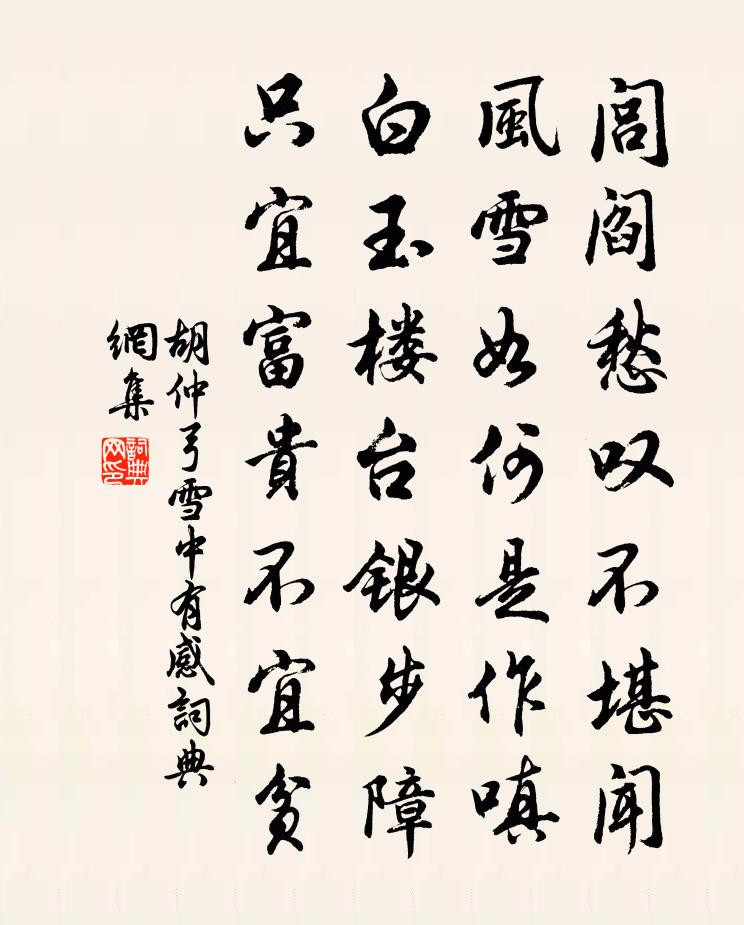 閭阎愁叹不堪聞
風雪如何是作嗔
白玉楼台銀步障
只宜富貴不宜贫
胡仲弓雪中有感詞典
網集
詞典网印